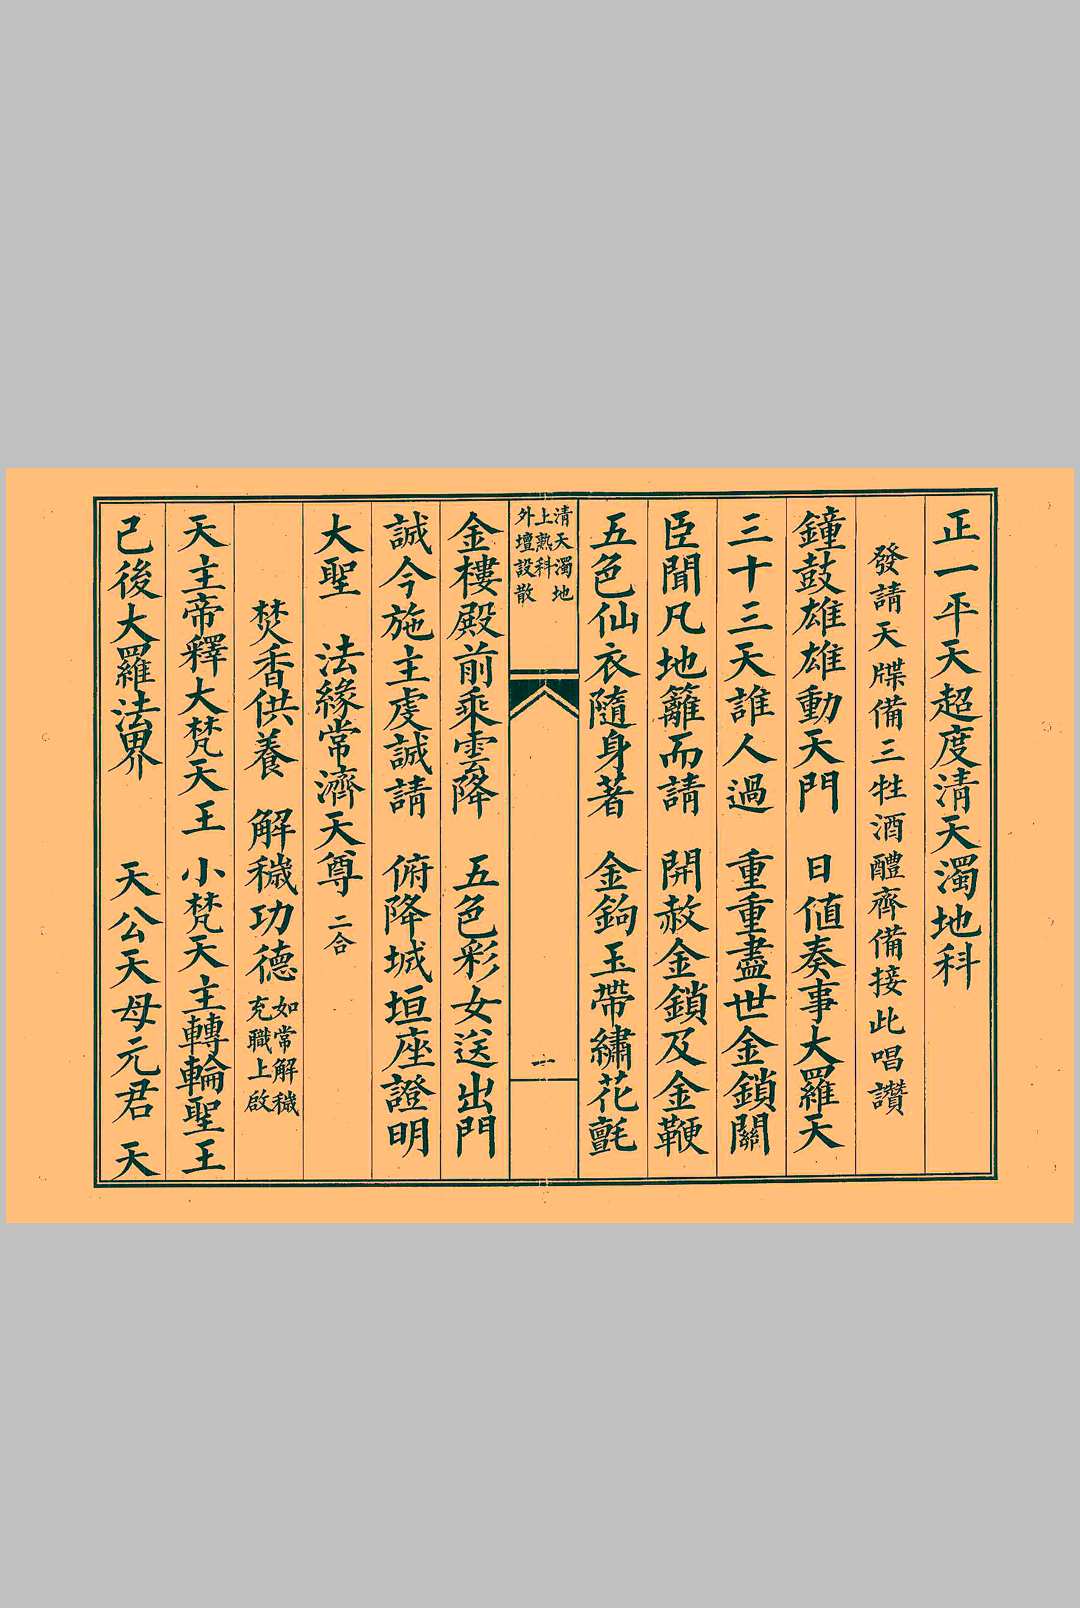 正一平天超度淸天濁地科
發請天牒備三牲酒醴齊備接此唱讚
鐘鼓雄雄動天門　日値奏事大羅天
三十三天誰人過　重重盡世金鎖關
臣聞凡地籬而請　開赦金鎖及金鞭
五色仙衣隨身著　金鉤玉帶繡花氈
清天濁地
上熟科
外壇設散
一
金樓殿前乘雲降　五色彩女送出門
誠今施主虔誠請　俯降城垣座證明
大聖　法緣常濟天尊 二合
焚香供養　解穢功德 如常解穢
充職上啟
天主帝釋大梵天王　小梵天主轉輪聖王
己後大羅法界　天公天母元君　天